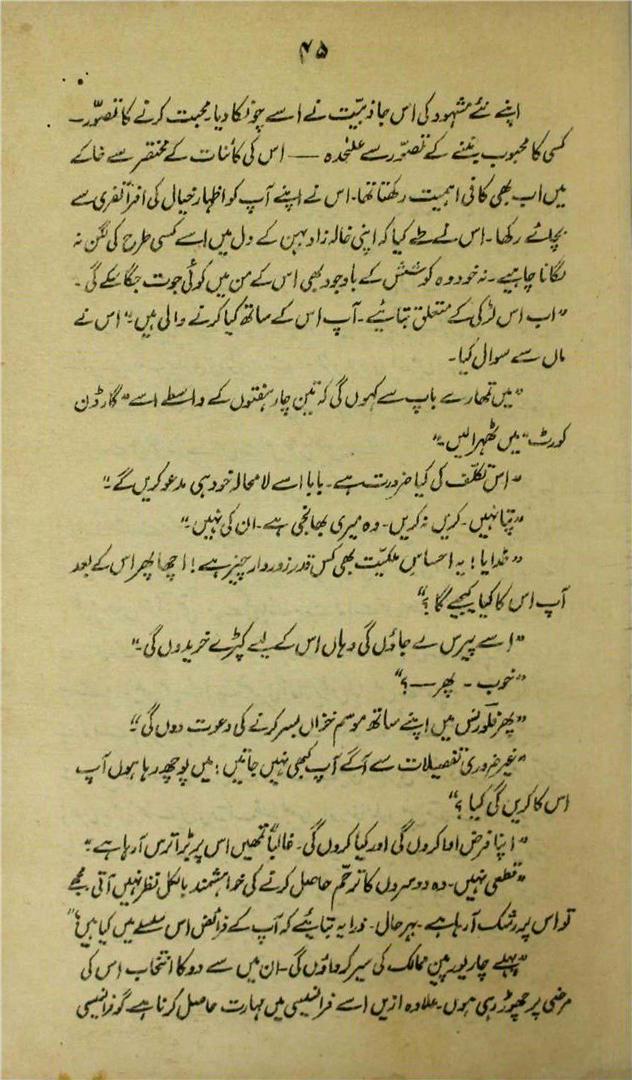 ۴۵
اپنے نئے مشہود کی اس جاذبیّت نے اسے چونکا دیا۔ محبت کرنے کا تصوّر۔
کسی کا محبوب بننے کے تصوّر سے علیٰحدہ — اس کی کائنات کے مختصر سے خاکے
میں اب بھی کافی اہمیت رکھتا تھا۔ اس نے اپنے آپ کو اظہار خیال کی افراتفری سے
بچائے رکھا۔ اس نے طے کیا کہ اپنی خالہ زاد بہن کے دل میں اسے کسی طرح کی لگن نہ
لگانا چاہیے۔ نہ خود وہ کوشش کے باوجود بھی اس کے من میں کوئی جوت جگا سکے گی۔
"اب اس لڑکی کے متعلق بتائیے۔ آپ اس کے ساتھ کیا کرنے والی ہیں۔" اس نے
ماں سے سوال کیا۔
"میں تمھارے باپ سے کہوں گی کہ تین چار ہفتوں کے واسطے اسے "گارڈن
کورٹ" میں ٹھہرالیں۔"
"اس تکلّف کی کیا ضرورت ہے۔ بابا اسے لامحالہ خود ہی مدعو کریں گے۔"
"پتا نہیں۔ کریں نہ کریں۔ وہ میری بھانجی ہے۔ ان کی نہیں۔"
"خدایا! یہ احساسِ ملکیّت بھی کس قدر زوردار چیز ہے! اچھا پھر اس کے بعد
آپ اس کا کیا کیجیے گا؟"
"اسے پیرس لے جاؤں گی وہاں اس کے لیے کپڑے خریدوں گی۔"
"خوب ۔ پھر —؟"
"پھر فلورنس میں اپنے ساتھ موسم خزاں بسر کرنے کی دعوت دوں گی۔"
"غیر ضروری تفصیلات سے آگے آپ کبھی نہیں جاتیں؛ میں پوچھ رہا ہوں آپ
اس کا کریں گی کیا؟"
"اپنا فرض ادا کروں گی اور کیا کروں گی۔ غالباً تمھیں اس پر بڑا ترس آ رہا ہے۔"
"قطعی نہیں۔ وہ دوسروں کا ترحّم حاصل کرنے کی خواہشمند بالکل نظر نہیں آتی مجھے
تو اس پر رشک آ رہا ہے۔ بہرحال۔ ذرا یہ بتائیے کہ آپ کے فرائض اس سلسلے میں کیا ہیں؟"
"پہلے چار یورپین ممالک کی سیر کرواؤں گی۔ ان میں سے دو کا انتخاب اس کی
مرضی پر چھوڑ رہی ہوں۔ علاوہ ازیں اسے فرانسیسی میں مہارت حاصل کرنا ہے گو فرانسیسی